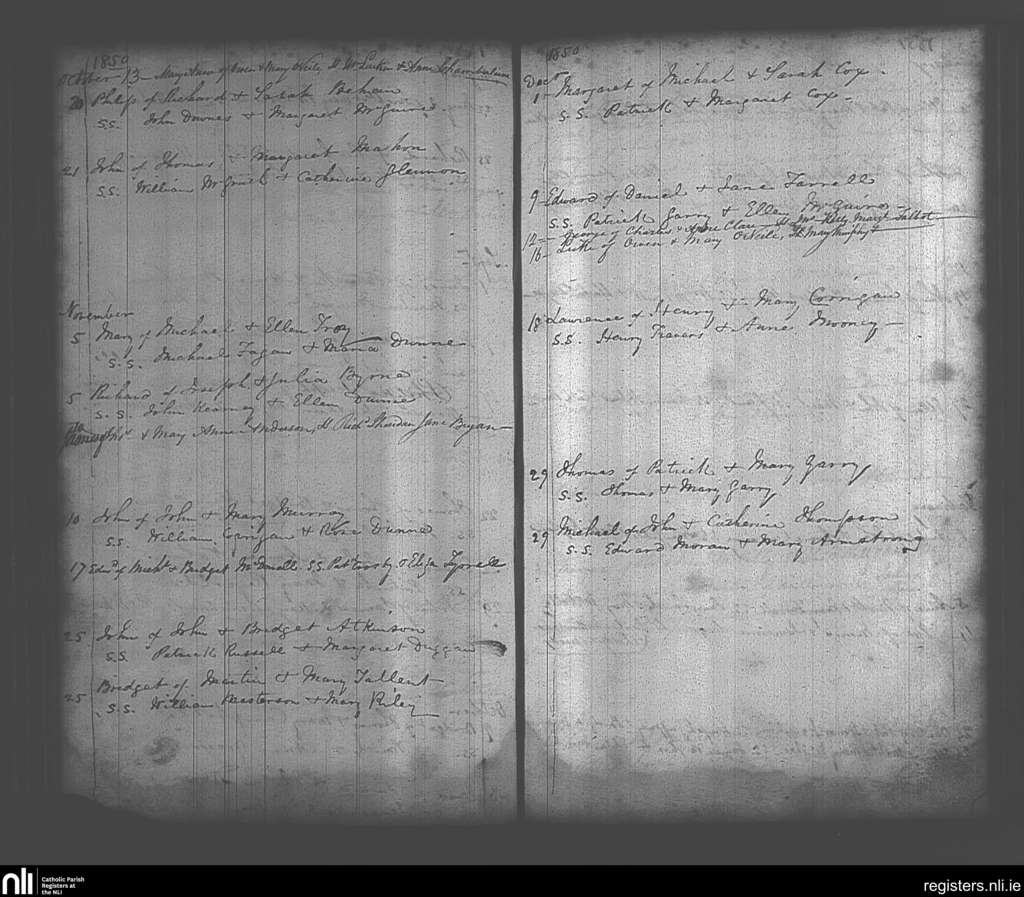 1850
October 13 - Mary Anne of Owen & Mary O'Neile, St. & Anne
20 Philip of Richard & Sarah Behan
S.S. John Downes & Margaret McGuire
21 John of Thomas & Margaret Mahon
S.S. William McGrath & Catherine Glennon
November
5 Mary of Michael & Ellen Troy
S.S. Michael Fagan & Maria Dunne
5 Richard of Joseph & Julia Byrne
S.S. John Kearney & Ellen Dunne
& May Anne Anderson, St. Richd Sheridan Jane Bryan
10 John of John & Mary Murray
S.S. William Carigan & Rose Dunne
17 Edwd of Michl & Bridget S.S. Patt & Eliza Tyrrell
25 John of John & Bridget Atkinson
S.S. Patrick Russell & Margaret Duggan
25 Bridget of Martin & Mary Tallent
S.S. William Masterson & Mary Riley
1850
Decr
1 - Margaret of Michael & Sarah Cox -
S.S. Patrick & Margaret Cox -
9 - Edward of Daniel & Jane Farrell
S.S. Patrick Garry & Ellen McGuire -
12 - George of Charles & Anne Clare Kelly Margt Talbot
16 - Luke of Owen & Mary O'Neile, St. Mary Murphy
18 Lawrence of Henry & Mary Corrigan
S.S. Henry Travers & Anne Mooney -
29 Thomas of Patrick & Mary Garry
S.S. Thomas & Mary Garry
29 Michael of John & Catherine Thompson
S.S. Edward Moran & Mary Armstrong
nli
Catholic Parish
Registers at
the NLI
registers.nli.ie